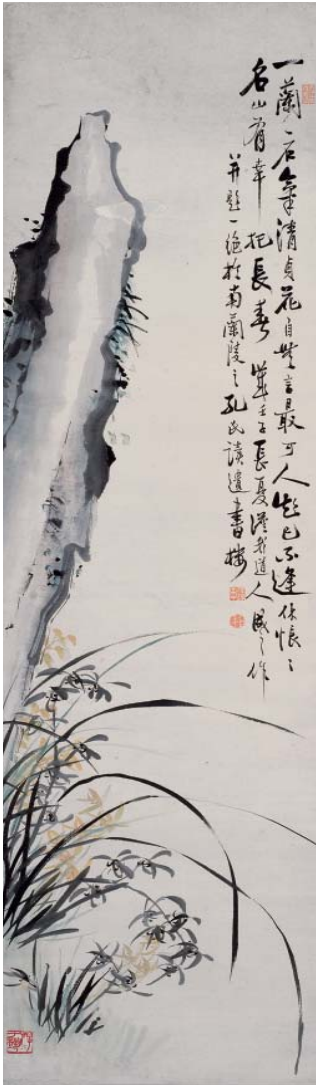 一蘭一石氣清貞花自無言最可人已不逢休悵〻
名山有幸把長春歲壬子長夏道人作
并題一絕於南蘭陵之孔氏讀遺書樓